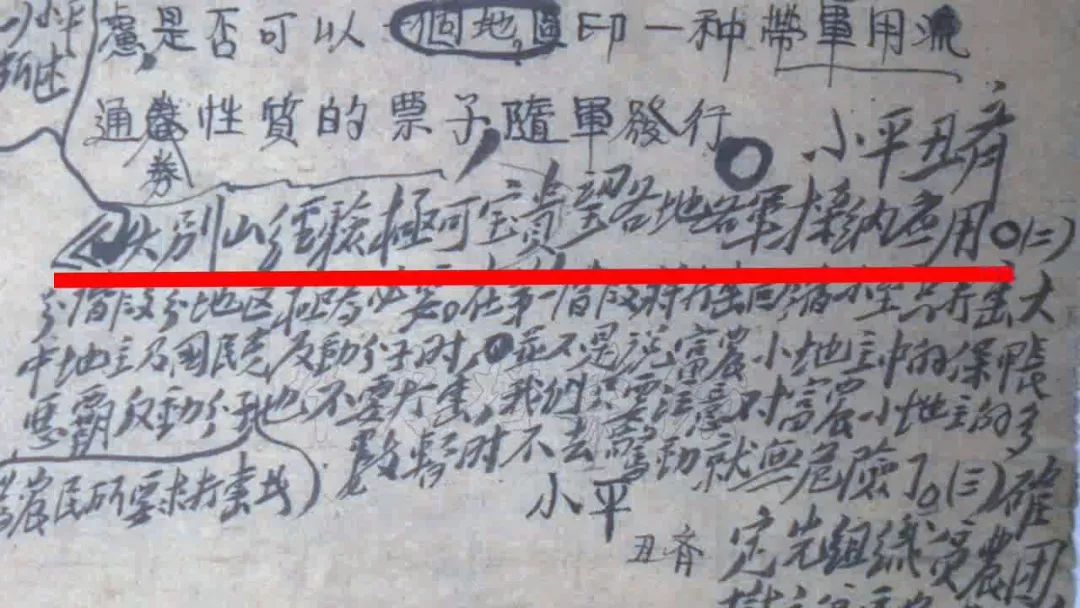 小平
所述
慮是否可以一個地區印一种帶軍用流
通券性質的票子,隨軍發行。
券
小平丑齊
大别山經驗極可宝貴,望各地各軍採納應用。(二)
分階段分地区極爲必要。在第一階段將打擊面縮小至只打擊大
中地主及國民党反動分子时,並不是說富農小地主中的保甲長
惡霸反動分子也不要打擊,我們只要注意对富農小地主的多
數暫时不去驚动就無危險了。(三)確
農民所要求打擊此
小平
丑齊
定先組織貧農团,